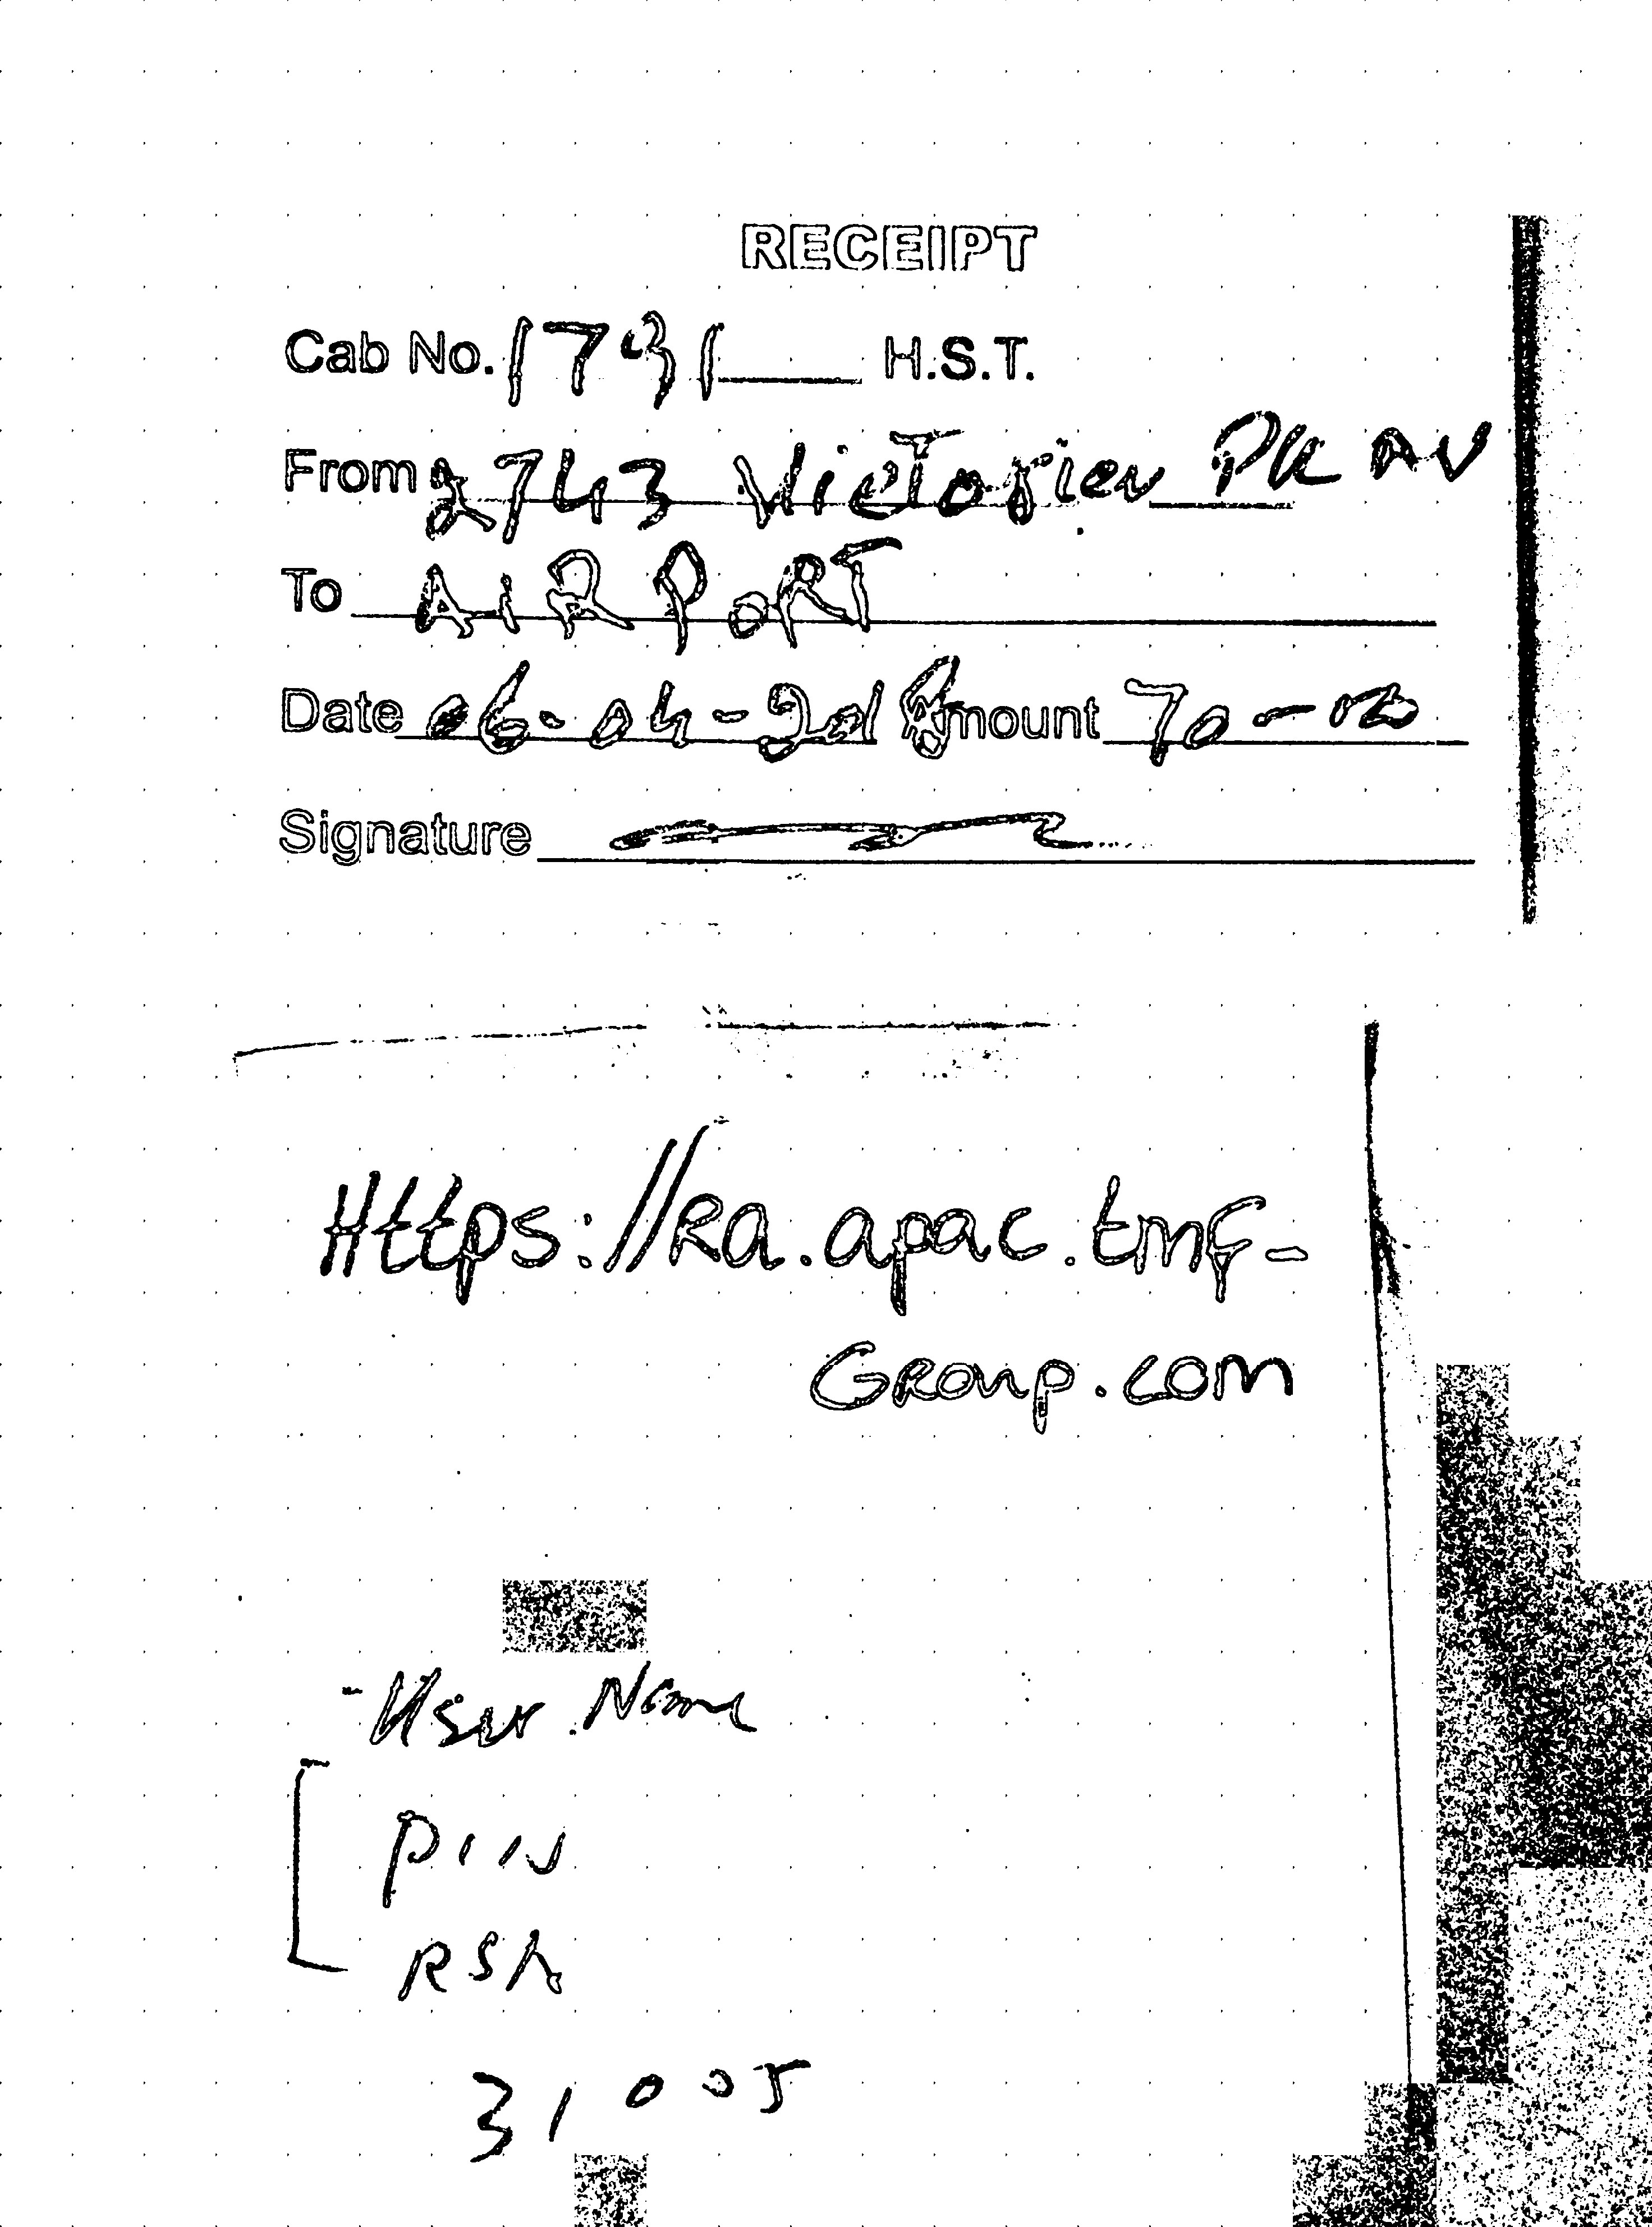 RECEIPT
Cab No. 1731 H.S.T.
From 2743 Victorien PK AV
To AIRPORT
Date 06-04-2018 Amount 70-00
Signature
Https://Ra.apac.tmf-
Group.com
- User Name
PIN
RSA
31005